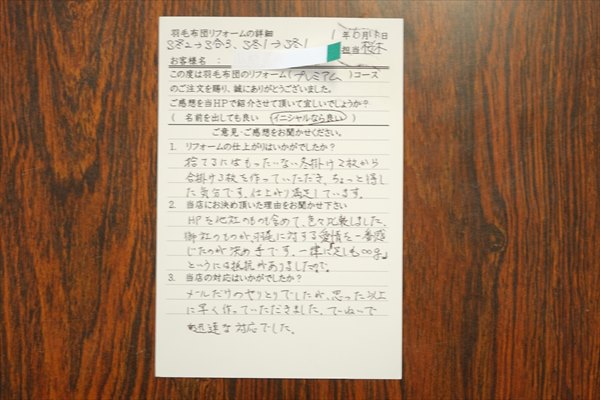 羽毛布団リフォームの詳細
1年6月 日
S冬2→S合3、S冬1→S冬1
担当
お客様名 :
この度は羽毛布団のリフォーム(プレミアム)コース
のご注文を賜り、誠にありがとうございました。
ご感想を当HPで紹介させて頂いて宜しいでしょうか?
( 名前を出しても良い イニシャルなら良い )
ご意見・ご感想をお聞かせください。
1. リフォームの仕上がりはいかがでしたか?
捨てるにはもったいない冬掛け2枚から
合掛け3枚を作っていただき、ちょっと得し
た気分です。仕上がり満足しています。
2. 当店にお決め頂いた理由をお聞かせ下さい
HPを他社のものも含めて、色々比較しました。
御社のものが羽毛に対する愛情を一番感
じたのが決め手です。一律「足し毛○○g」
というには抵抗がありましたので。
3. 当店の対応はいかがでしたか?
メールだけのやりとりでしたが、思った以上
に早く作っていただきました。ていねいで
迅速な対応でした。